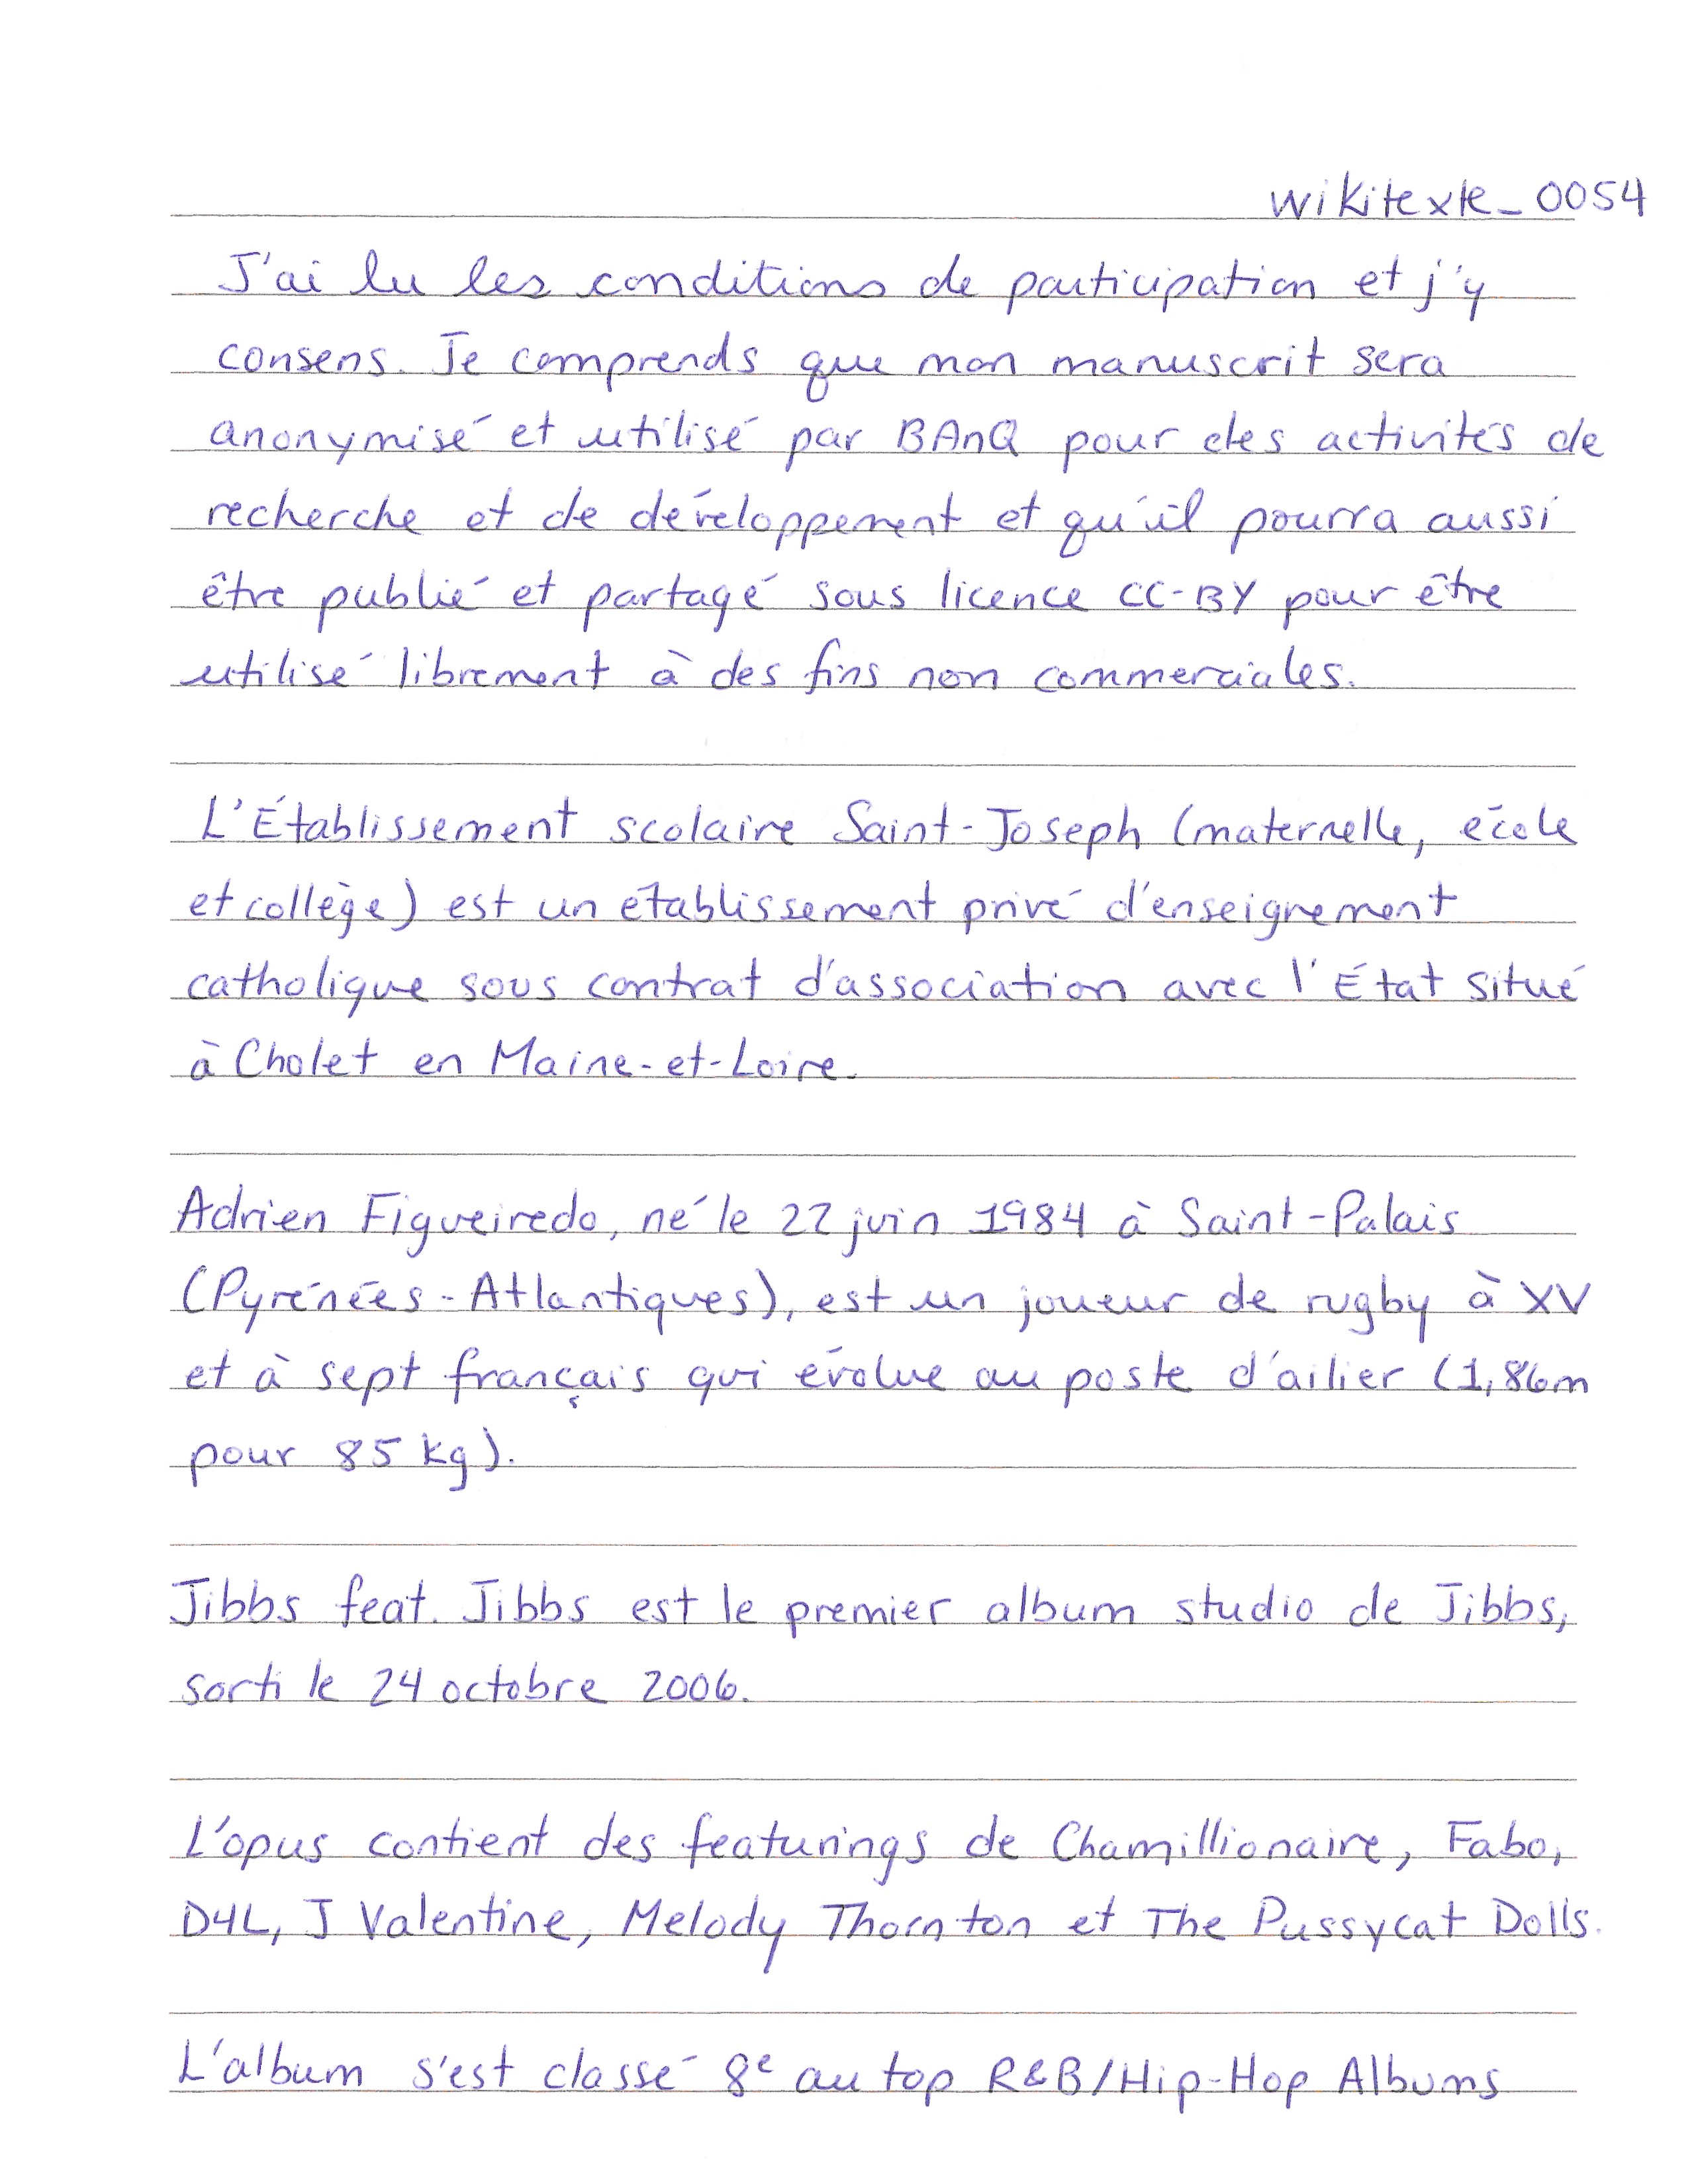 wikitexte_0054
J'ai lu les conditions de participation et j'y
consens. Je comprends que mon manuscrit sera
anonymisé et utilisé par BAnQ pour des activités de
recherche et de développement et qu'il pourra aussi
être publié et partagé sous licence CC-BY pour être
utilisé librement à des fins non commerciales.
L'Établissement scolaire Saint-Joseph (maternelle, école
et collège) est un établissement privé d'enseignement
catholique sous contrat d'association avec l'État situé
à Cholet en Maine-et-Loire.
Adrien Figueiredo, né le 22 juin 1984 à Saint-Palais
(Pyrénées-Atlantiques), est un joueur de rugby à XV
et à sept français qui évolue au poste d'ailier (1,86m
pour 85 kg).
Jibbs feat. Jibbs est le premier album studio de Jibbs,
sorti le 24 octobre 2006.
L'opus contient des featurings de Chamillionaire, Fabo,
D4L, J Valentine, Melody Thornton et The Pussycat Dolls.
L'album s'est classé 8e au top R&B/Hip-Hop Albums